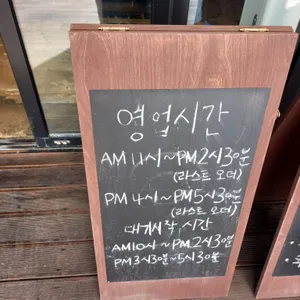 영업시간
AM 11시~PM2시30분
(라스트 오더)
PM 4시~PM5시30분
(라스트 오더)
대기시작 시간
AM10시~PM2시30분
PM3시30분~5시30분